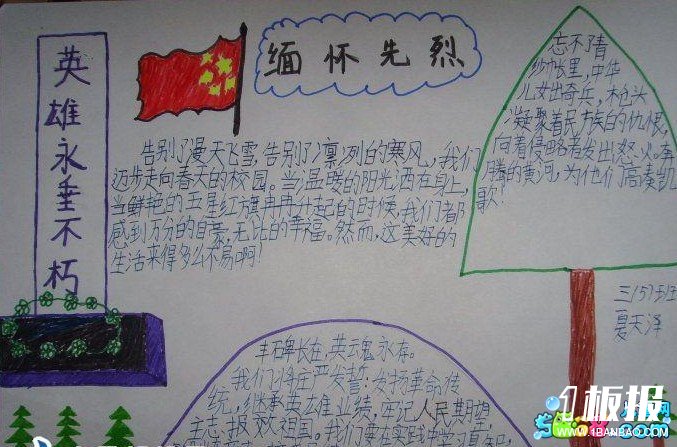 英雄永垂不朽
缅怀先烈
告别了漫天飞雪,告别了凛冽的寒风,我们
迈步走向春天的校园。当温暖的阳光洒在身上,
当鲜艳的五星红旗冉冉升起的时候,我们都
感到万分的自豪,无比的幸福。然而,这美好的
生活来得多么不易啊!
忘不了青
纱帐里,中华
儿女出奇兵,枪头
凝聚着民族的仇恨,
向着侵略者发出怒火。奔
腾的黄河,为他们高奏凯
歌!
三(5)班
夏天泽
丰碑长在,英魂永存。
我们将庄严发誓:发扬革命传
统,继承英雄业绩,牢记人民期望
志,报效祖国
1板报
WWW.1BANBAO.COM